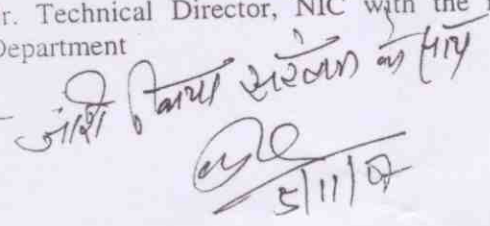 r. Technical Director, NIC with the
Department
जारी किया संलग्न के साथ
5/11/07